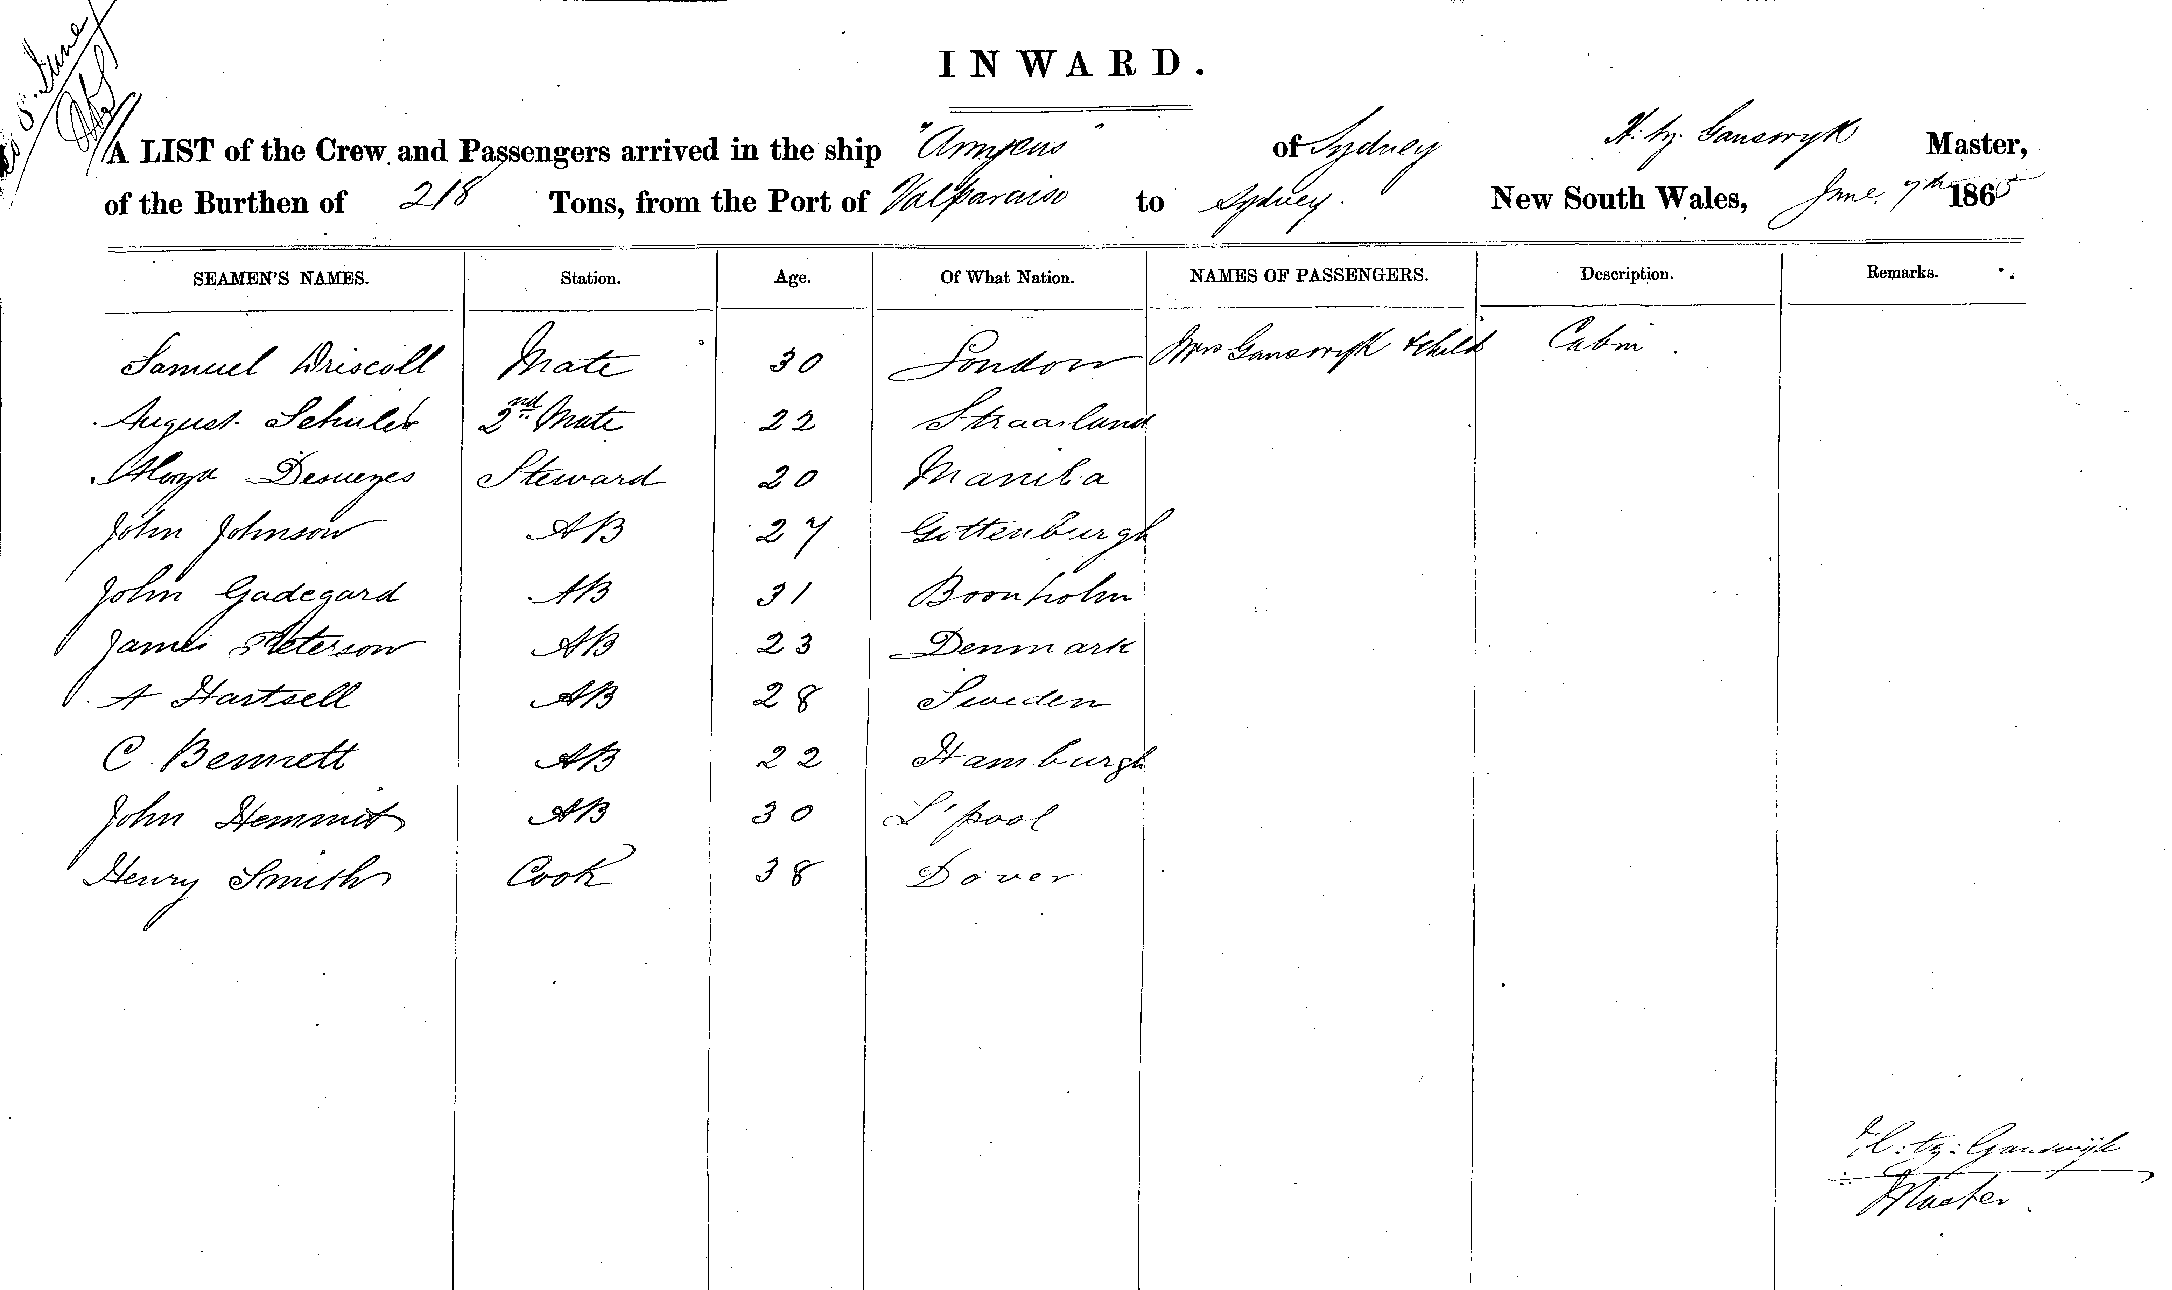 8. June
INWARD.
A LIST of the Crew and Passengers arrived in the ship "Ampeus" of Sydney H: tz: Ganswyk Master,
of the Burthen of 218 Tons, from the Port of Valparaiso to Sydney. New South Wales, June 7th 1865
SEAMEN'S NAMES. Station. Age. Of What Nation. NAMES OF PASSENGERS. Description. Remarks.
Samuel Driscoll Mate 30 London Mrs Ganswyk & Child Cabin.
August Schuler 2nd Mate 22
Steward 20 Manila
John Johnson AB 27 Gottenburgh
John Gadegard AB 31 Boonholm
James Peterson AB 23 Denmark
A Hartsell AB 28 Sweden
C. Bennett AB 22 Hamburgh
John Hemmit AB 30 L'pool
Henry Smith Cook 38 Dover
H: tz: Ganswijk
Master